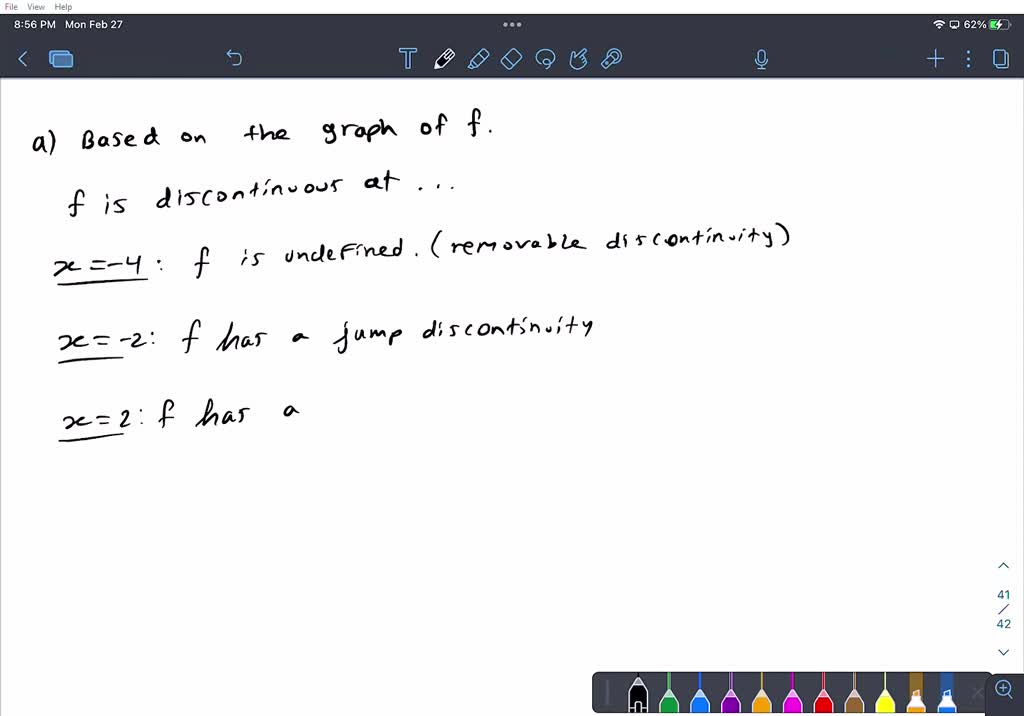 File View Help
8:56 PM Mon Feb 27
62%
T
a) Based on the graph of f.
f is discontinuous at ...
x=-4: f is undefined. (removable discontinuity)
x=-2: f has a jump discontinuity
x=2: f has a
41
/
42